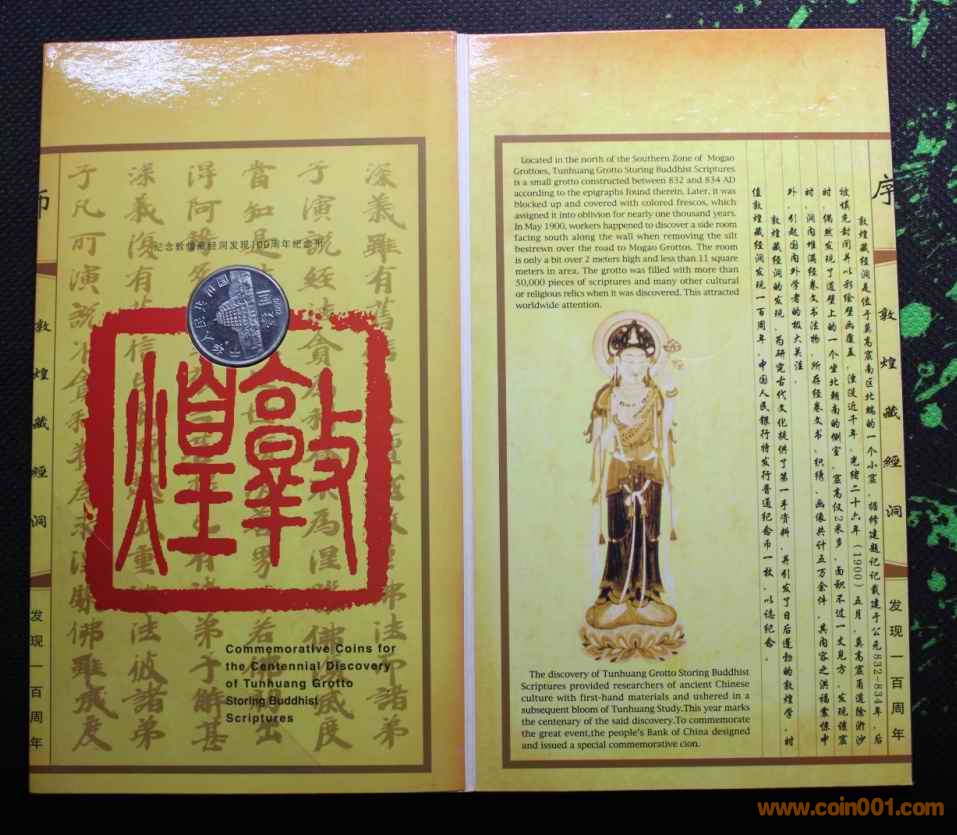 纪念敦煌藏经洞发现100周年纪念刊
敦煌
Commemorative Coins for
the Centennial Discovery
of Tunhuang Grotto
Storing Buddhist
Scriptures
敦煌藏經洞
发现一百周年
Located in the north of the Southern Zone of Mogao
Grottoes, Tunhuang Grotto Storing Buddhist Scriptures
is a small grotto constructed between 832 and 834 AD
according to the epigraphs found therein. Later, it was
blocked up and covered with colored frescos, which
assigned it into oblivion for nearly one thousand years.
In May 1900, workers happened to discover a side room
facing south along the wall when removing the silt
bestrewn over the road to Mogao Grottos. The room
is only a bit over 2 meters high and less than 11 square
meters in area. The grotto was filled with more than
50,000 pieces of scriptures and many other cultural
or religious relics when it was discovered. This attracted
worldwide attention.
The discovery of Tunhuang Grotto Storing Buddhist
Scriptures provided researchers of ancient Chinese
culture with first-hand materials and ushered in a
subsequent bloom of Tunhuang Study.This year marks
the centenary of the said discovery.To commemorate
the great event,the people's Bank of China designed
and issued a special commemorative cion.
序
敦煌藏經洞
发现一百周年
敦煌藏经洞是位于莫高窟南区北端的一个小窟，据修建题记记载建于公元832-834年，后
被填充封闭并以彩绘壁画覆盖，湮没近千年。光绪二十六年（1900）五月，莫高窟甬道除淤沙
时，偶然发现了道壁上的一个坐北朝南的侧室，窟高仅2米多，面积不过一丈见方，发现该窟
时，洞内堆满经卷文书法物，所存经卷文书、织绣、画像共计五万余件，其内容之洪福震惊中
外，引起国内外学者的极大关注。
敦煌藏经洞的发现，为研究古代文化提供了第一手资料，并引发了日后蓬勃的敦煌学，时
值敦煌藏经洞发现一百周年，中国人民银行特发行普通纪念币一枚，以誌纪念。
www.coin001.com